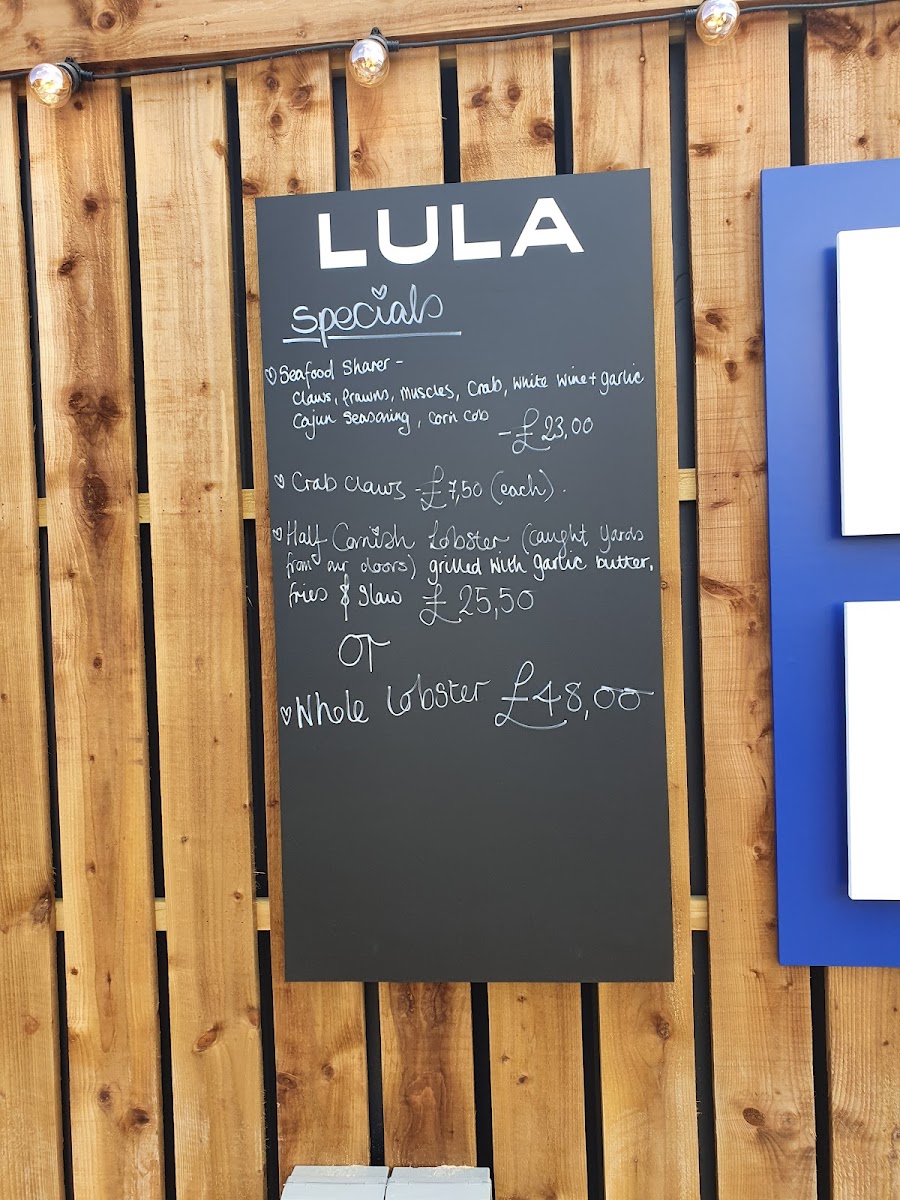 LULA
Specials
Seafood Sharer -
Claws, Prawns, Muscles, Crab, White Wine + garlic
Cajun Seasoning, Corn Cob
- £23,00
Crab Claws - £7,50 (each).
Half Cornish Lobster (caught yards
from our doors) grilled with garlic butter,
fries & Slaw £25,50
or
Whole Lobster £48,00